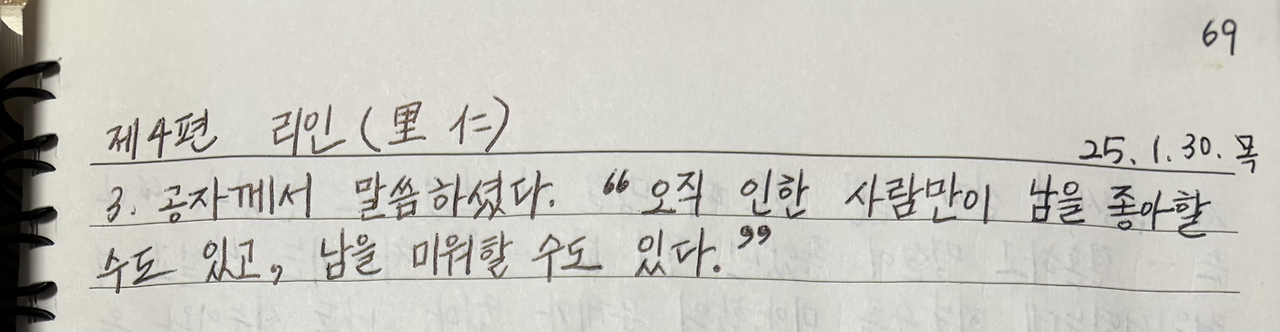 69
제4편 리인(里仁)
25.1.30.목
3. 공자께서 말씀하셨다. "오직 인한 사람만이 남을 좋아할
수도 있고, 남을 미워할 수도 있다."